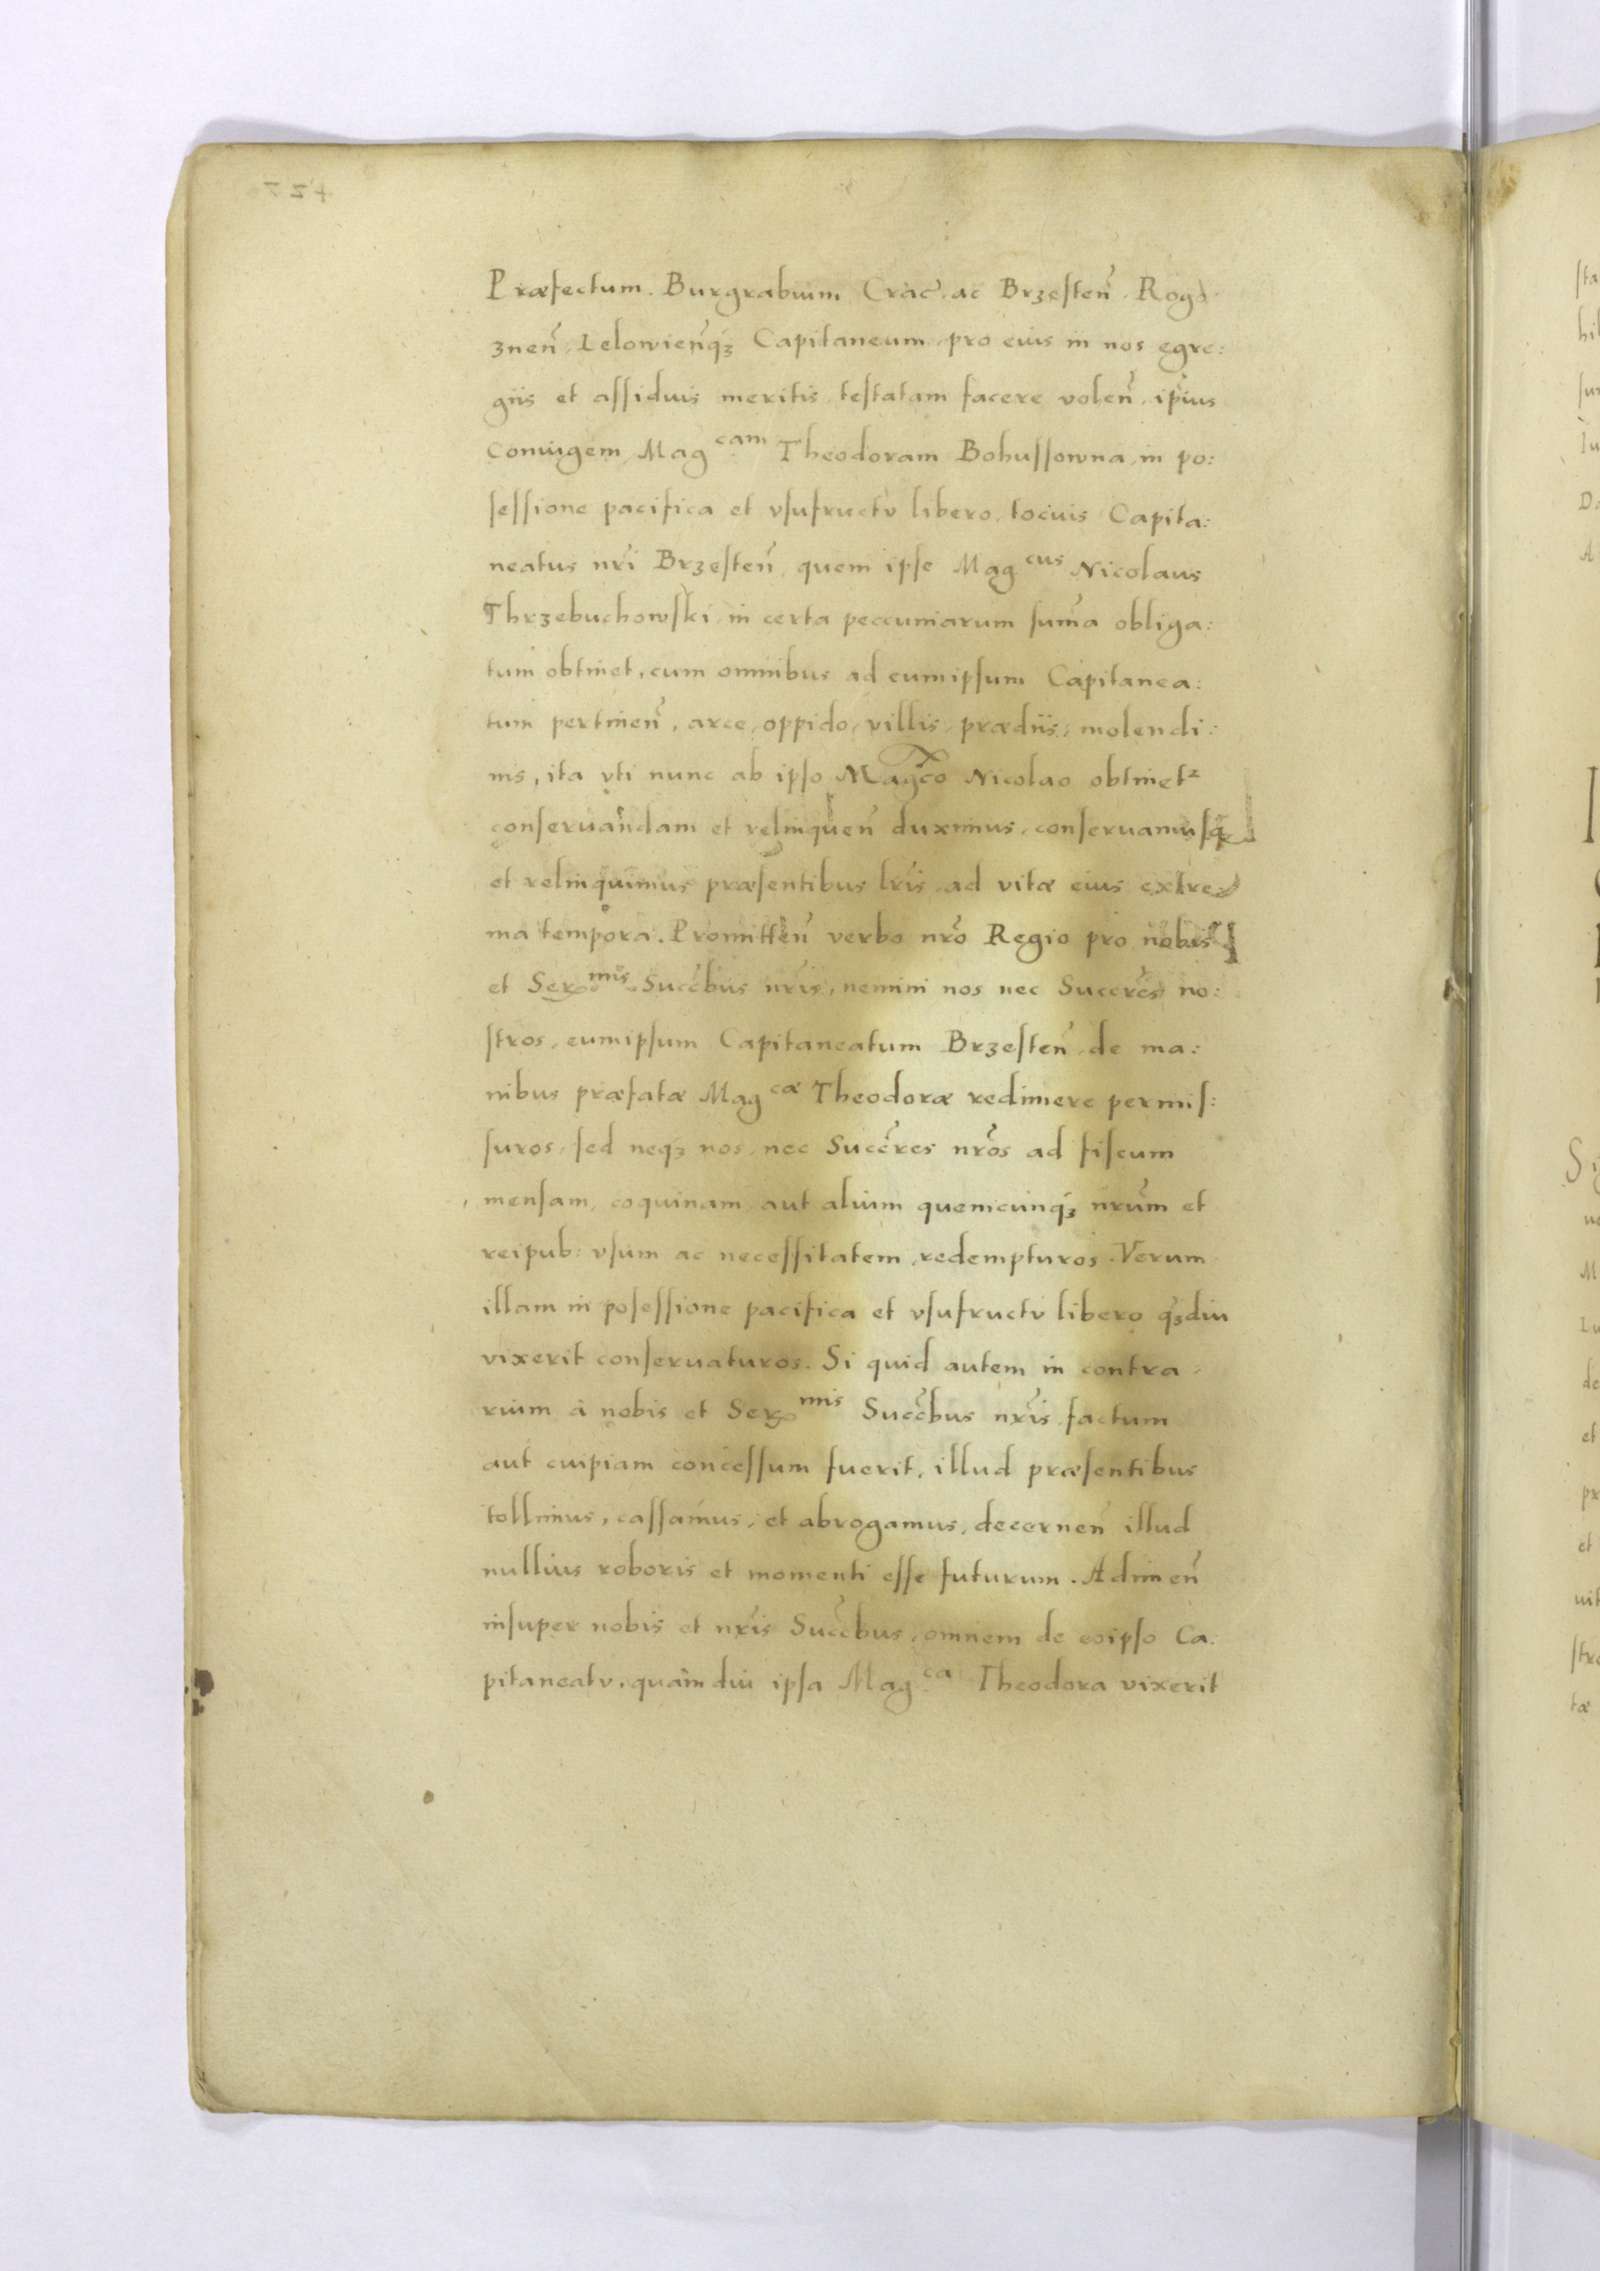 Præfectum. Burgrabium Crac̃. ac Brzesteñ. Rogo
zneñ, Leloviẽnqꝫ Capitaneum, pro eius in nos egre:
giis et assiduis meritis, testatam facere voleñ. ip̃ius
Coniugem, Mag cam Theodoram Bohussowna, in po:
ſeſsione pacifica et vſufructv libero, tocius Capita:
neatus nr̃i Brzeſteñ, quem ipſe Mag cus Nicolaus
Thrzebuchowſki, in certa peccuniarum ſum̃a obliga:
tum obtinet, cum omnibus ad eumipſum Capitanea:
tum pertineñ, arce, oppido, villis, prædiis, molendi:
nis, ita vti nunc ab ipſo Magco Nicolao obtinet²
conſeruandam et relinqueñ duximus, conſeruamuſq̃
et relinquimus præſentibus lr̃is, ad vitæ eius extre
ma tempora. Promitteñ verbo nr̃o Regio pro nobis
et Ser mis Succ̃bus nr̃is, nemini nos nec Succr̃es no:
ſtros, eumipſum Capitaneatum Brzeſteñ, de ma:
nibus præfatæ Mag cæ Theodoræ redimere permiſ:
ſuros, ſed neqꝫ nos, nec Succr̃es nr̃os ad fiſcum
menſam, coquinam, aut alium quemcunqꝫ nr̃um et
reipub: vſum ac neceſſitatem, redempturos. Verum
illam in poſeſſione pacifica et vſufructv libero qꝫdiu
vixerit conſeruaturos. Si quid autem in contra
rium à nobis et Ser mis Succ̃bus nr̃is factum
aut cuipiam conceſſum fuerit, illud præſentibus
tollimus, caſſamus, et abrogamus, decerneñ illud
nullius roboris et momenti eſſe futurum. Adimeñ
inſuper nobis et nr̃is Succ̃bus, omnem de eoipſo Ca:
pitaneatv, quam diu ipſa Mag ca Theodora vixerit